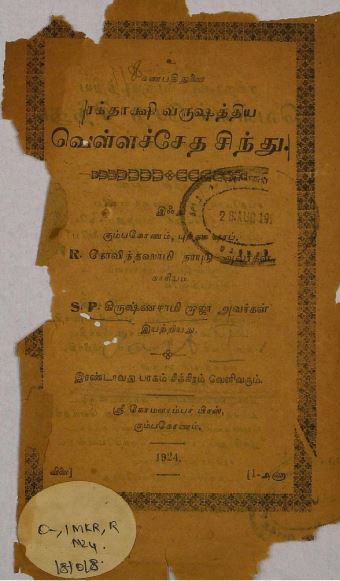 உ
கணபதி துணை
ரக்தாக்ஷி வருஷத்திய
வெள்ளச்சேத சிந்து.
இஃது
கும்பகோணம், புத்தக ஷாப்,
R. கோவிந்தஸாமி நாயுடு அவர்கள்
28 AUG 19
S. P. கிருஷ்ணசாமி ராஜா அவர்கள்
இயற்றியது.
இரண்டாவது பாகம் சீக்கிரம் வெளிவரும்.
ஸ்ரீ கோமளாம்பா பிரஸ்,
கும்பகோணம்.
1924.
விலை] [1-அணா
O-,1MKR,R
N24.